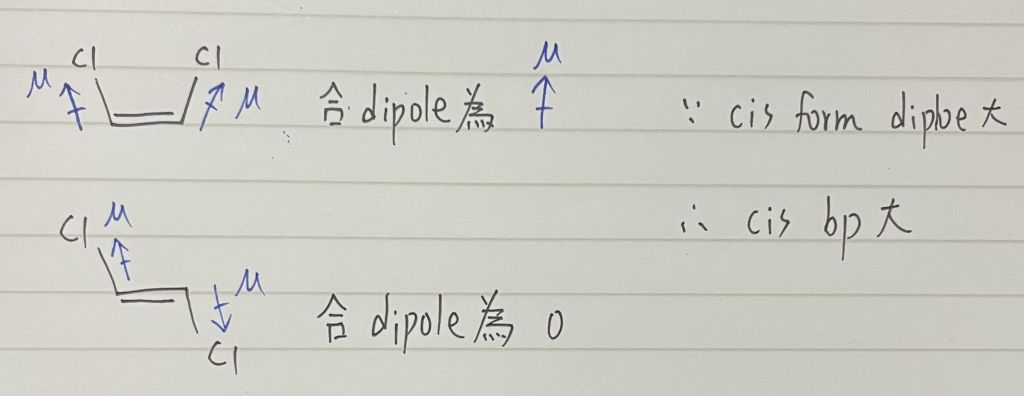 Cl Cl
μ μ 合 dipole 為 μ ∵ cis form diploe 大
∴ cis bp 大
Cl μ
μ
Cl 合 dipole 為 0